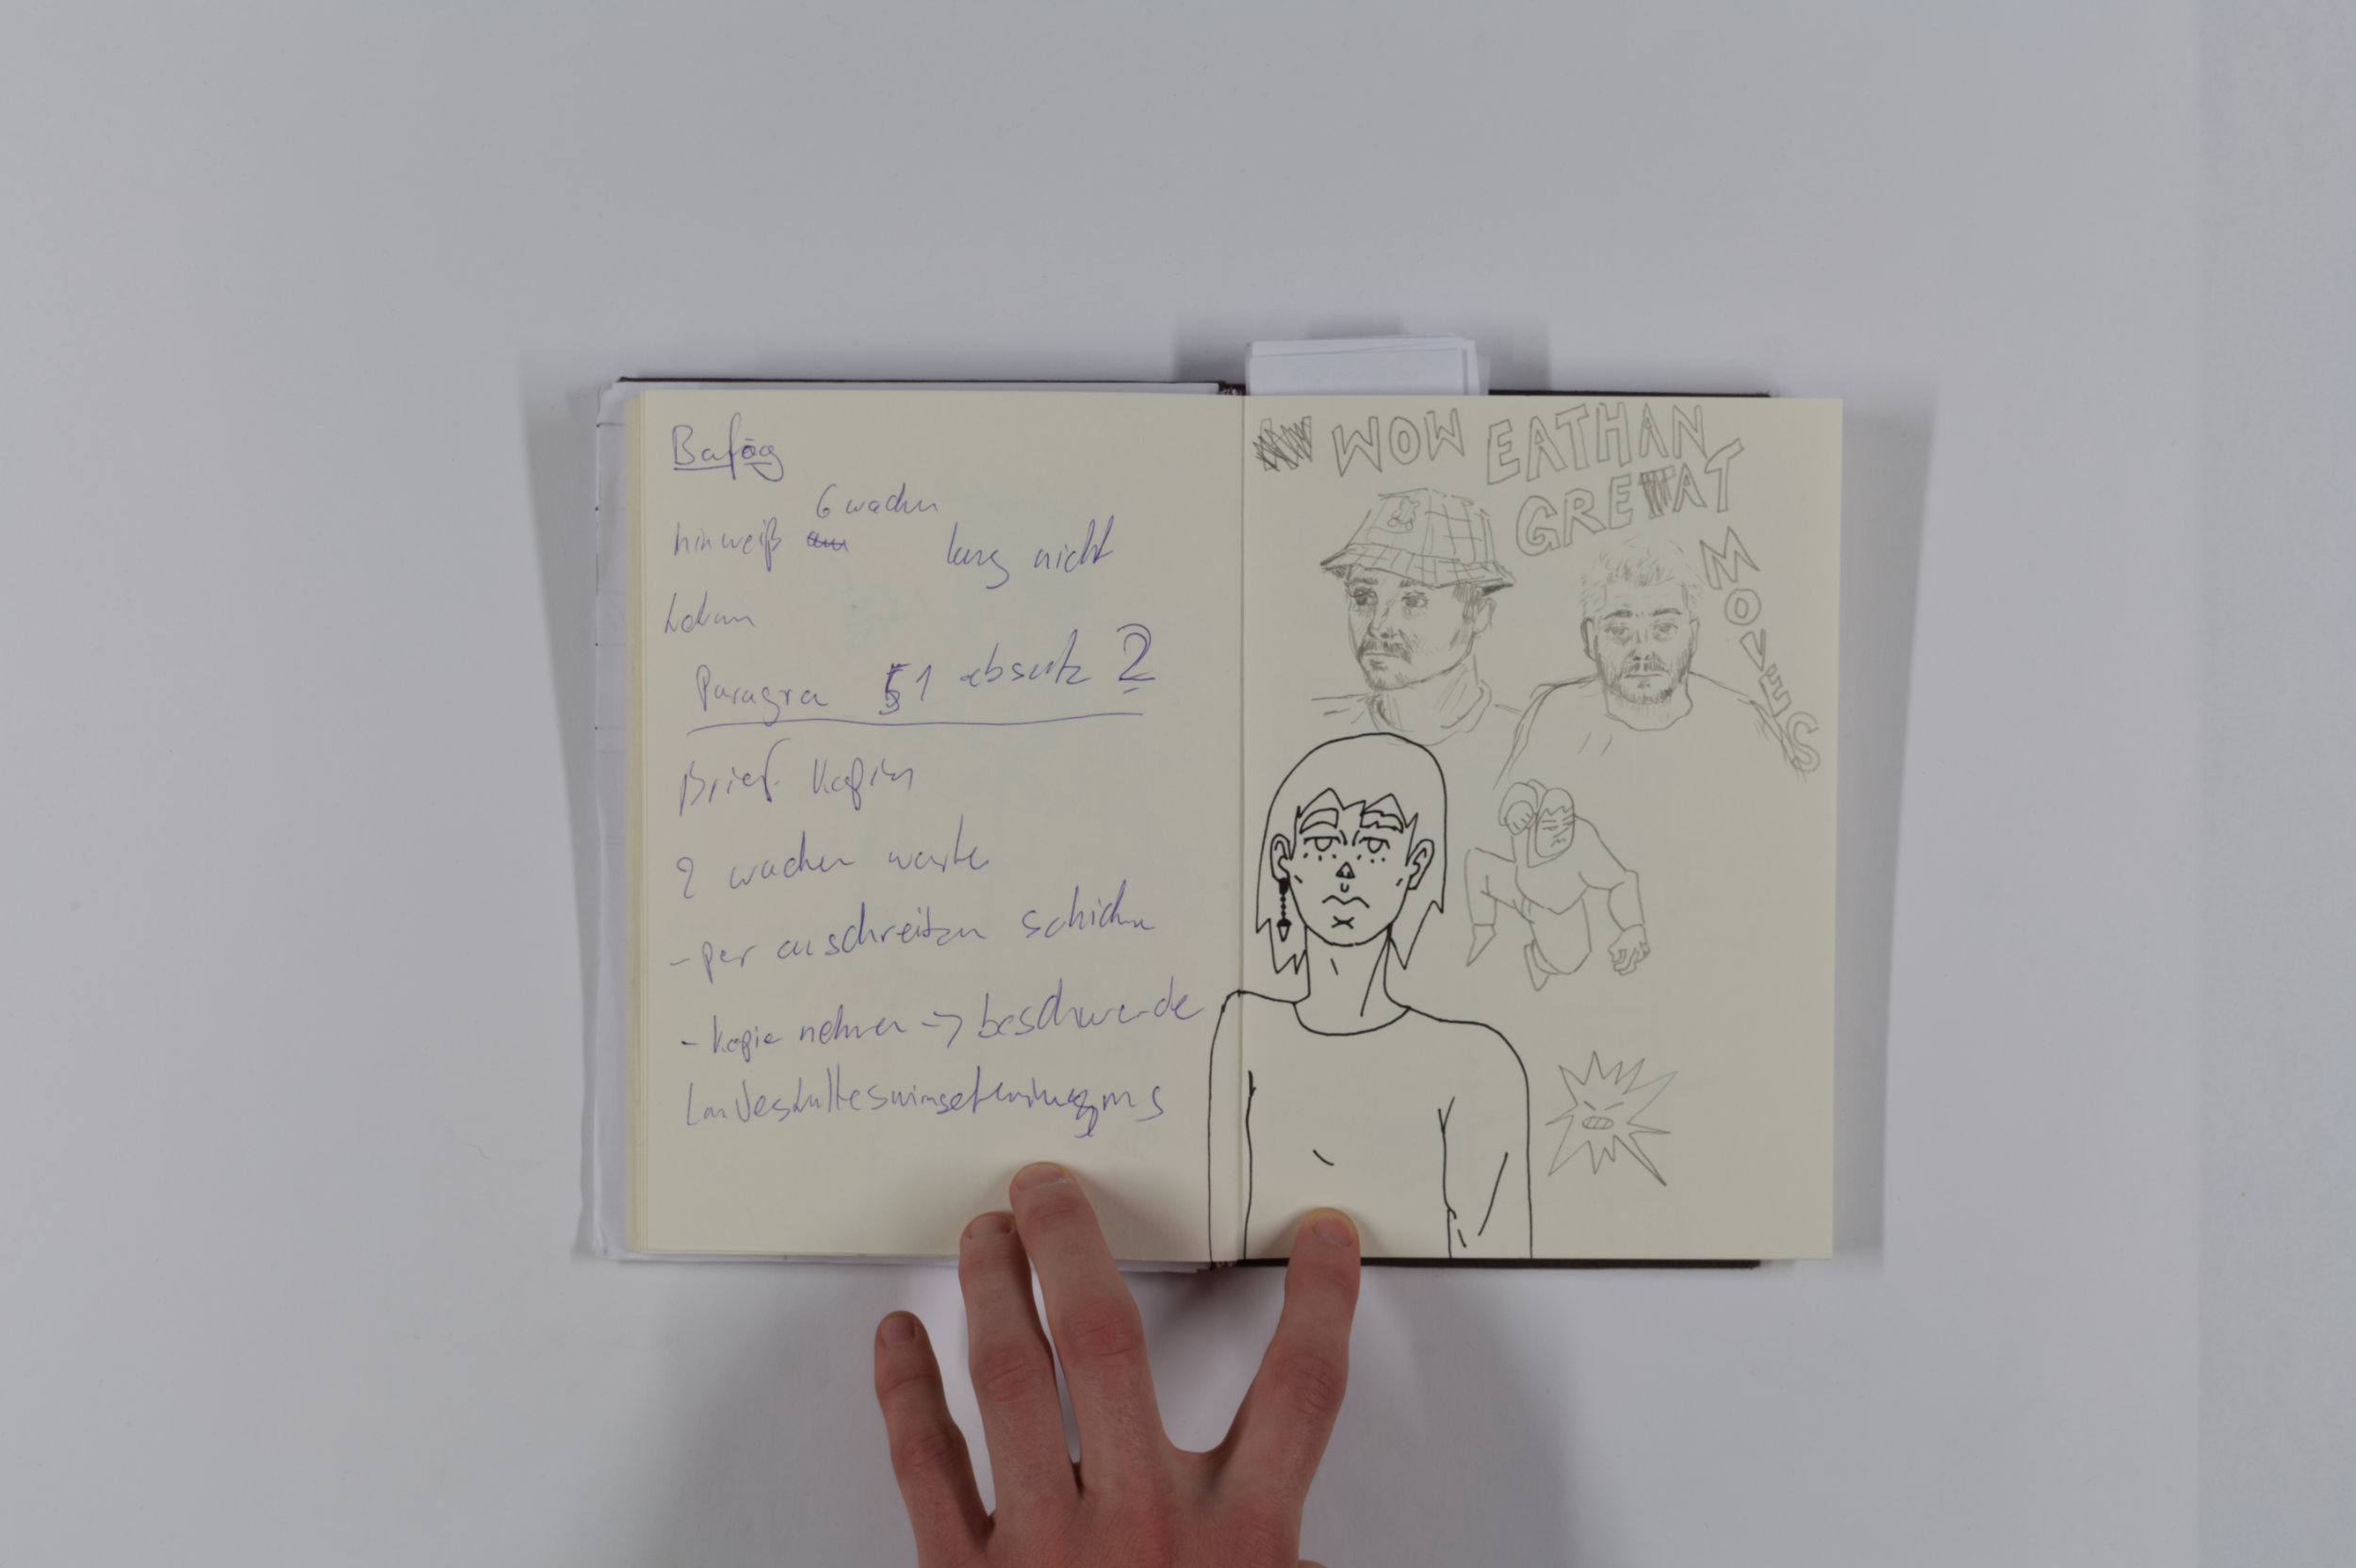 Bafög
6 wochen
hinweiß lang nicht
Paragra §1 absatz 2
Brief Kopien
2 wochen warte
- per einschreiben schicken
- Kopie nehmen -> beschwerde
WOW EATHAN
GREAT
MOVES